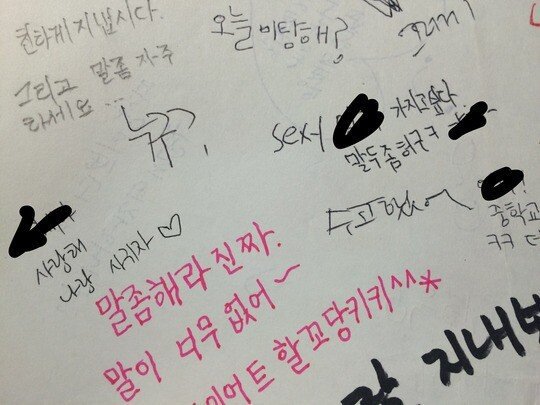 편하게 지냅시다.
그리고 말좀 자주
하세요...
오늘 미탕해?
뉴규?
sexy 가지고싶다
말두좀하구ㅋ
수고했어
사랑해
나랑 사귀자♡
중학교
ㅋㅋ
말좀해라 진짜.
말이 너무 없어~
이어트 할꼬당키키^^*
지내